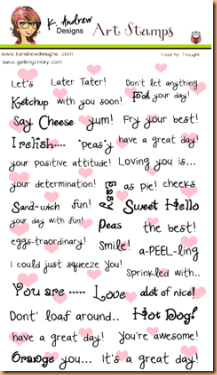 K. Andrew
Designs
Art Stamps
www.kandrewdesigns.com
Food for Thought
www.gettinginky.com
Let's Later Tater! Don't let anything
Ketchup with you soon! Foil your day!
Say Cheese yum! Fry your best!
I relish..... 'peas'y have a great day!
your positive attitude! Loving you is...
your determination! Easy as pie! cheeks
Sand-wich fun! Sweet Hello
your day with fun! Peas the best!
eggs-traordinary! Smile! a-PEEL-ling
I could just squeeze You! Sprinkled with..
You are ..... Love alot of nice!
Dont' loaf around.. Hot Dog!
have a great day! You're awesome!
Orange you... It's a great day!